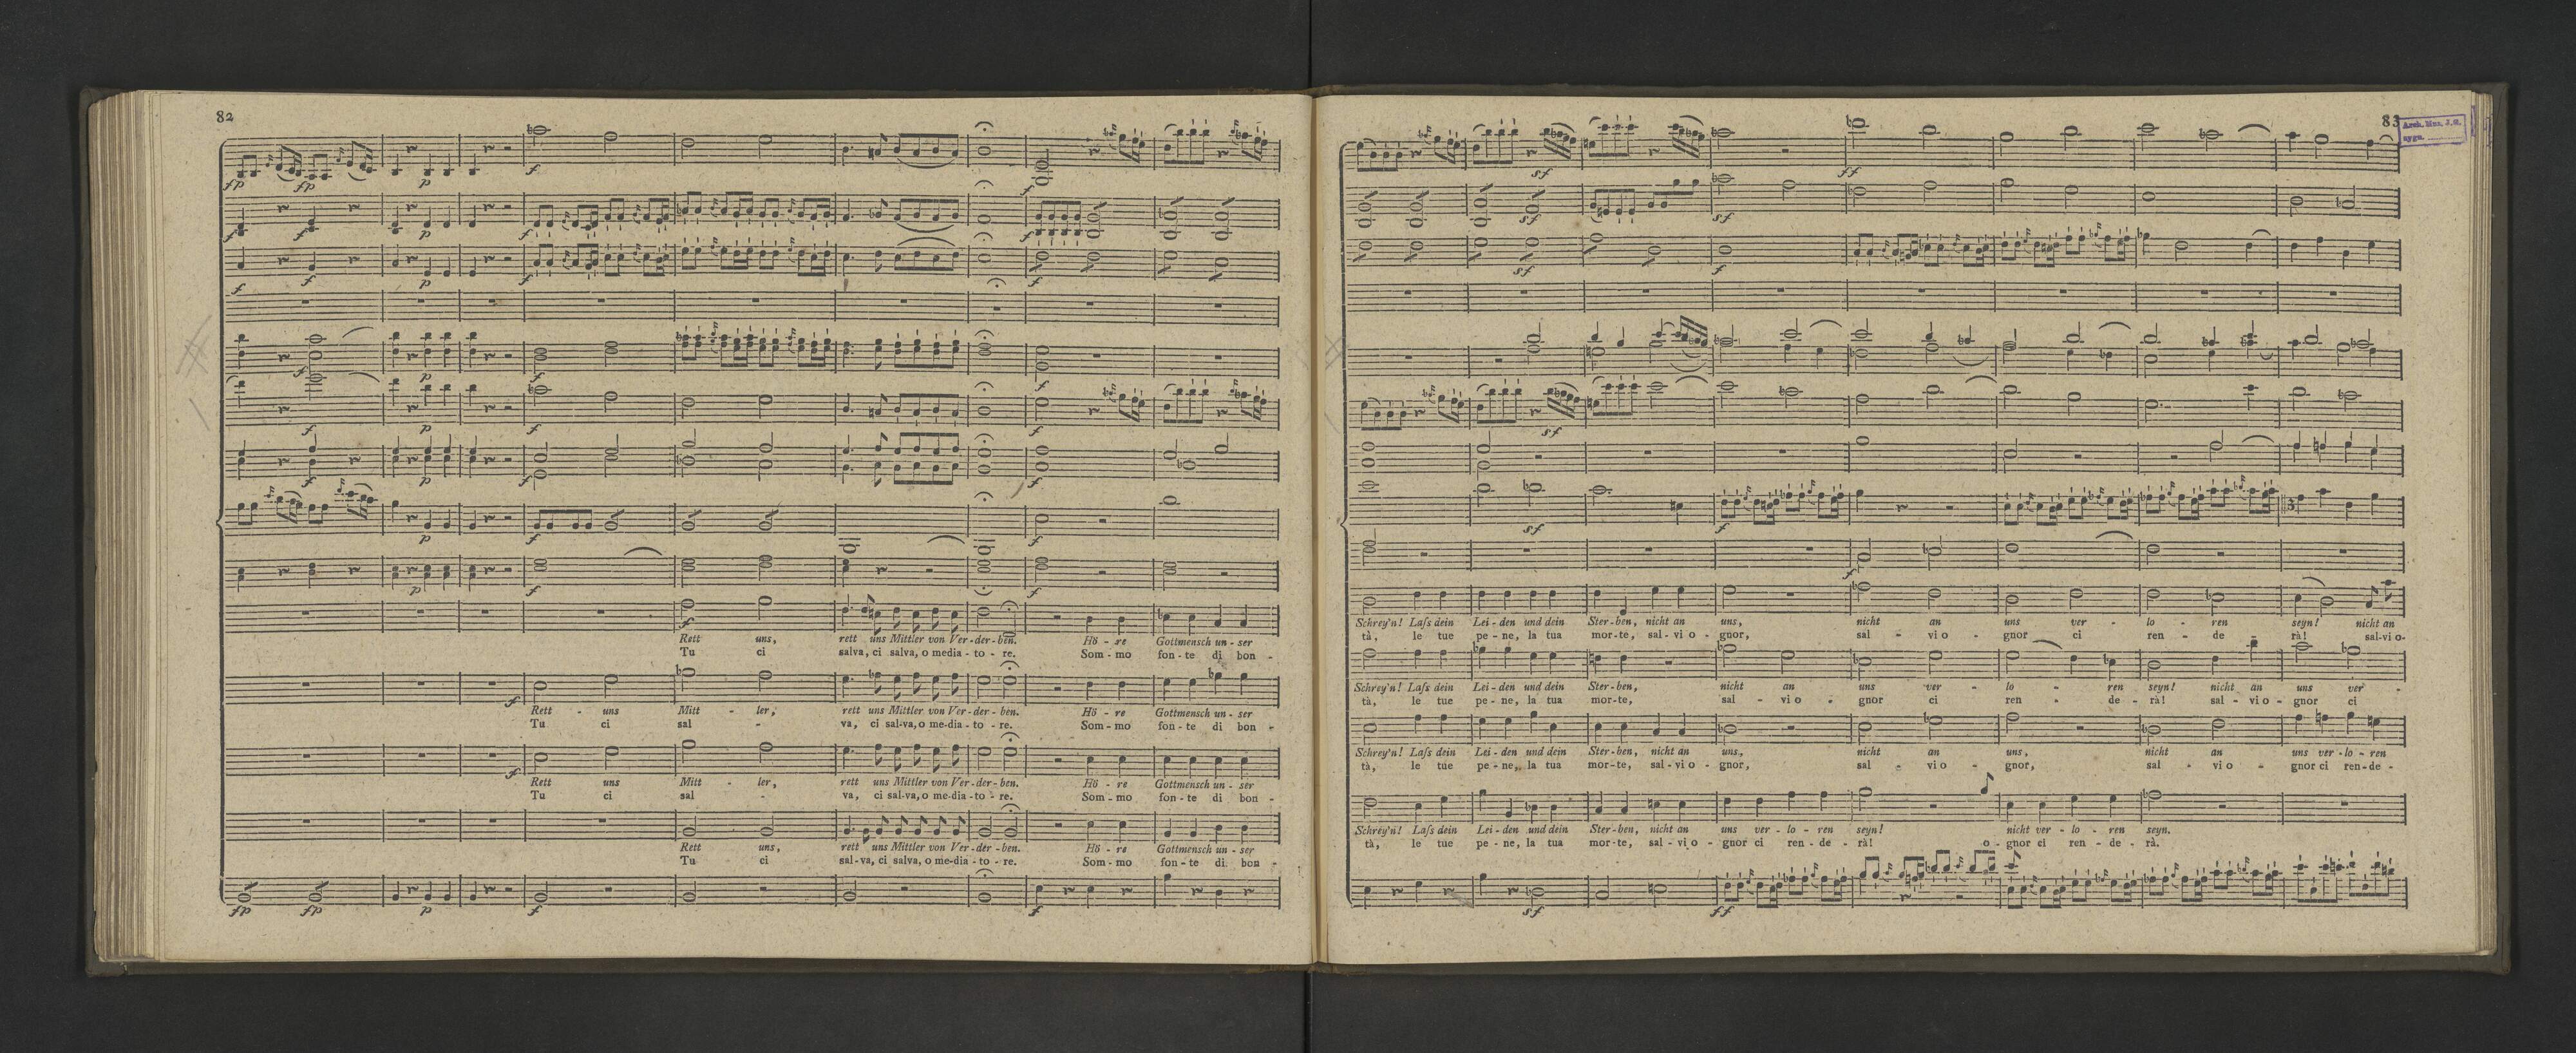 82
Rett uns, rett uns Mittler von Ver-der-ben. Hö - re Gottmensch un - ser
Tu ci salva, ci salva, o media - to - re. Som - mo fon - te di bon -
Rett - uns Mitt - ler, rett uns Mittler von Ver-der-ben. Hö - re Gottmensch un - ser
Tu ci sal - va, ci sal-va, o me-dia - to - re. Som - mo fon - te di bon -
Rett uns Mitt - ler, rett uns Mittler von Ver-der-ben. Hö - re Gottmensch un - ser
Tu ci sal - va, ci sal-va, o me-dia - to - re. Som - mo fon - te di bon -
Rett uns, rett uns Mittler von Ver-der-ben. Hö - re Gottmensch un - ser
Tu ci sal-va, ci salva, o me-dia - to - re. Som - mo fon - te di bon -
83
Arch. Mus. J. G.
sygn.
Schrey'n! Laſs dein Lei - den und dein Ster - ben, nicht an uns, nicht an uns ver - lo - ren seyn! nicht an
tà, le tue pe - ne, la tua mor - te, sal - vi o - gnor, sal - vi o - gnor ci ren - de - rà! sal-vi o-
Schrey'n! Laſs dein Lei - den und dein Ster - ben, nicht an uns ver - lo - ren seyn! nicht an uns ver -
tà, le tue pe - ne, la tua mor - te, sal - vi o - gnor ci ren - de - rà! sal - vi o - gnor ci
Schrey'n! Laſs dein Lei - den und dein Ster - ben, nicht an uns, nicht an uns, nicht an uns ver - lo - ren
tà, le tue pe - ne, la tua mor - te, sal - vi o - gnor, sal - vi o - gnor, sal - vi o - gnor ci ren - de -
Schrey'n! Laſs dein Lei - den und dein Ster - ben, nicht an uns ver - lo - ren seyn! nicht ver - lo - ren seyn.
tà, le tue pe - ne, la tua mor - te, sal - vi o - gnor ci ren - de - rà! o - gnor ci ren - de - rà.